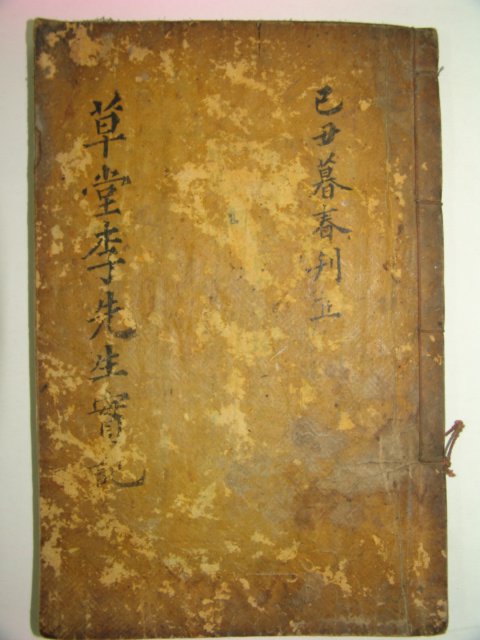 己丑暮春刊
草堂李先生實記